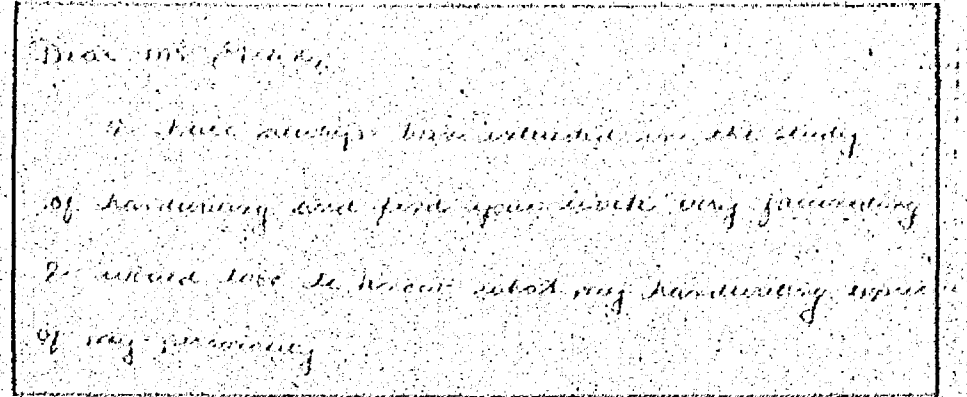 Dear Mr
I have always been interested in the study
of handwriting and find your work very fascinating
I would love to know what my handwriting
of my